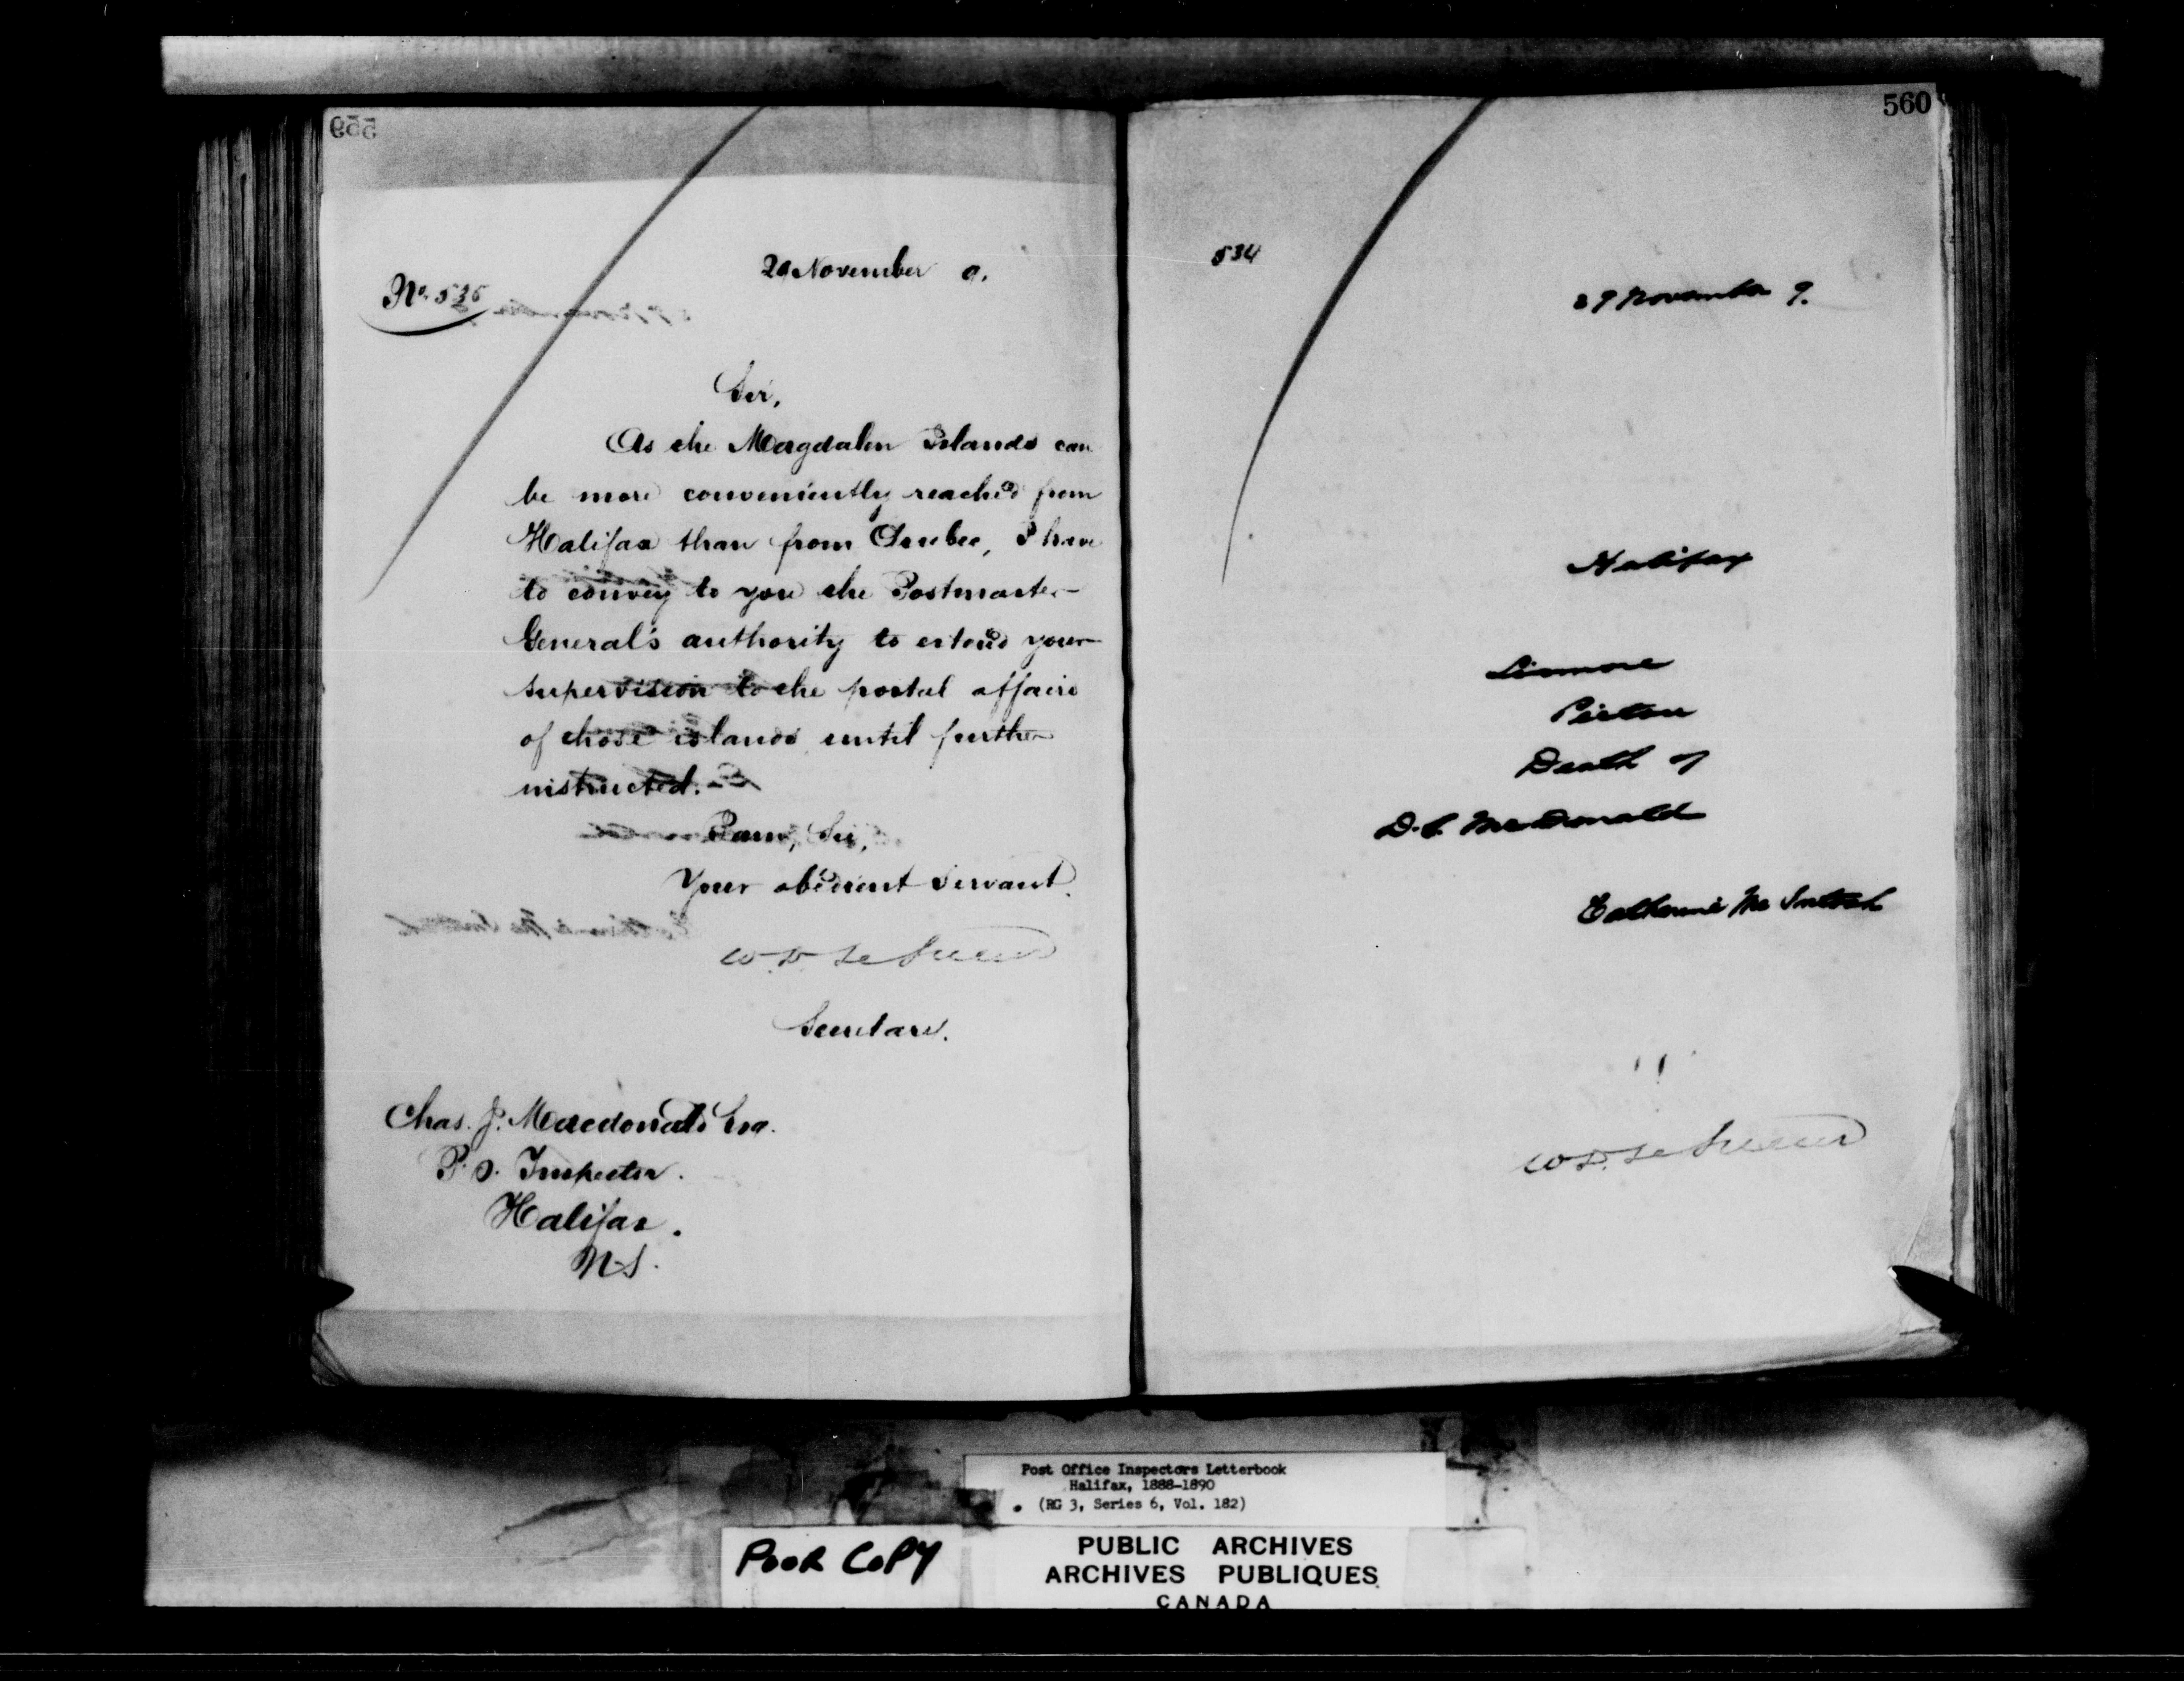 559
No. 535
29 November 9.
Sir,
As the Magdalen Islands can
be more conveniently reached from
Halifax than from Quebec, I have
to convey to you the Postmaster
General's authority to extend your
supervision to the postal affairs
of those islands until further
instructed.
I am, Sir,
Your obedient Servant.
W. D. LeSueur
Secretary.
Chas. J. Macdonald Esq.
P. O. Inspector.
Halifax.
N.S.
560
534
29 November 9.
Halifax
Linmore
Pictou
Death of
McDonald
Catherine McIntosh
W. D. LeSueur
Post Office Inspectors Letterbook
Halifax, 1888-1890
(RG 3, Series 6, Vol. 182)
POOR COPY
PUBLIC ARCHIVES
ARCHIVES PUBLIQUES
CANADA